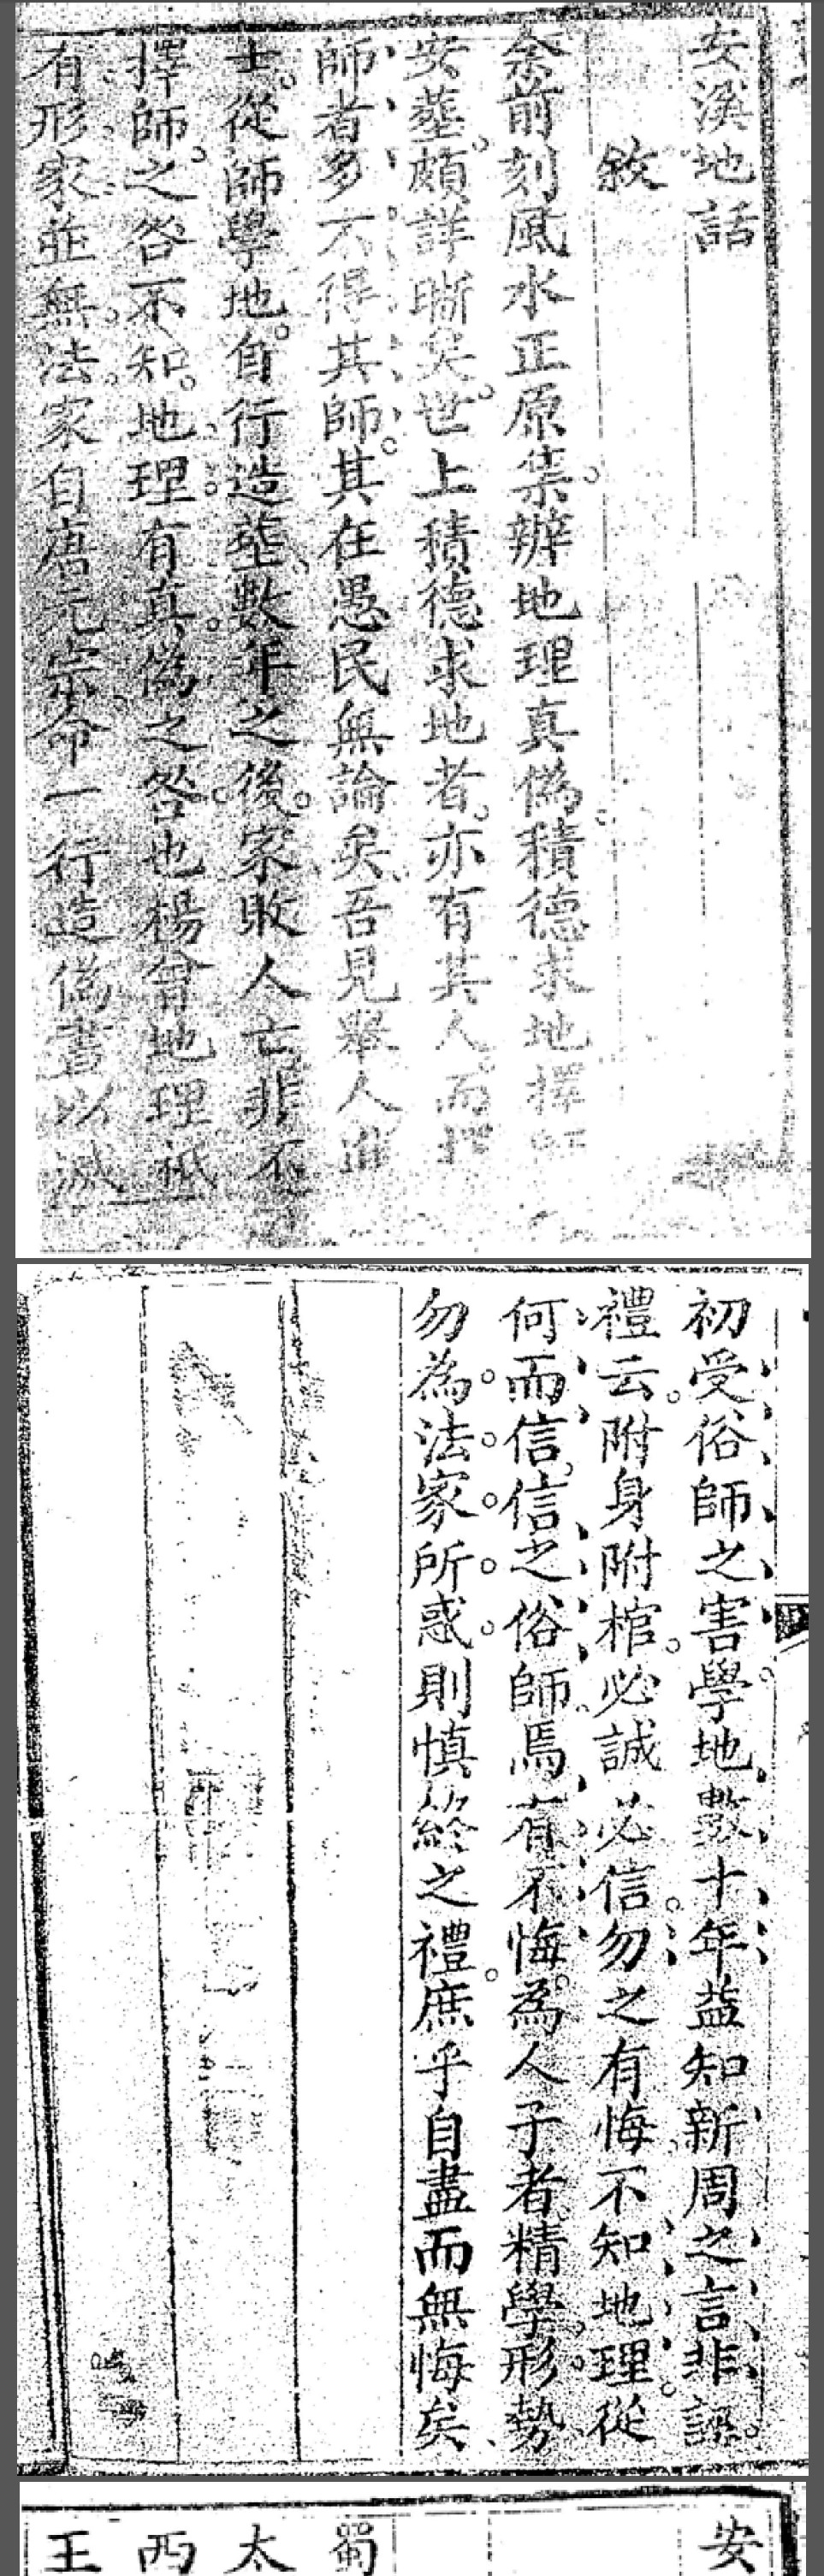 安溪地話
敘
余前刻風水正原集辦地理真偽積德求地擇師
安塟頗詳晰矣世上積德求地者亦有其人而擇
師者多不得其師其在愚民無論矣吾見舉人進
士從師學地自行造塟數年之後家敗人亡非不
擇師之咎不知地理有真偽之咎也楊曾地理祇
有形家並無法家自唐元宗命一行造偽書以滅
初受俗師之害學地數十年益知新周之言非誣
禮云附身附棺必誠必信勿之有悔不知地理從
何而信信之俗師焉有不悔為人子者精學形勢
勿為法家所惑則慎終之禮庶乎自盡而無悔矣
安
蜀
太
西
王